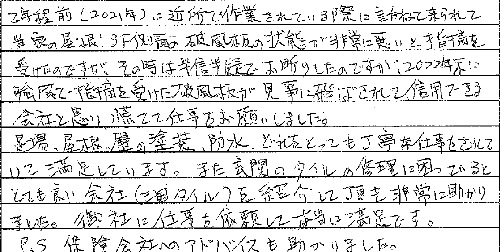 2年程前（2021年）に近所で作業されている際に訪ねて来られて
当家の屋根、3F側面の破風板の状態が非常に悪いと指摘を
受けたのですが、その時は半信半疑でお断りしたのですが、2022年末に
強風で指摘を受けた破風板が見事に飛ばされて信用できる
会社と思い慌てて仕事をお願いしました。
足場、屋根、壁の塗装、防水、どれをとっても丁寧な仕事をされて
いて満足しています。また玄関のタイルの修理に困っていると
とても良い会社（タイル）を紹介して頂き非常に助かり
ました。御社に仕事を依頼して本当に満足です。
P.S 保険会社へのアドバイスも助かりました。